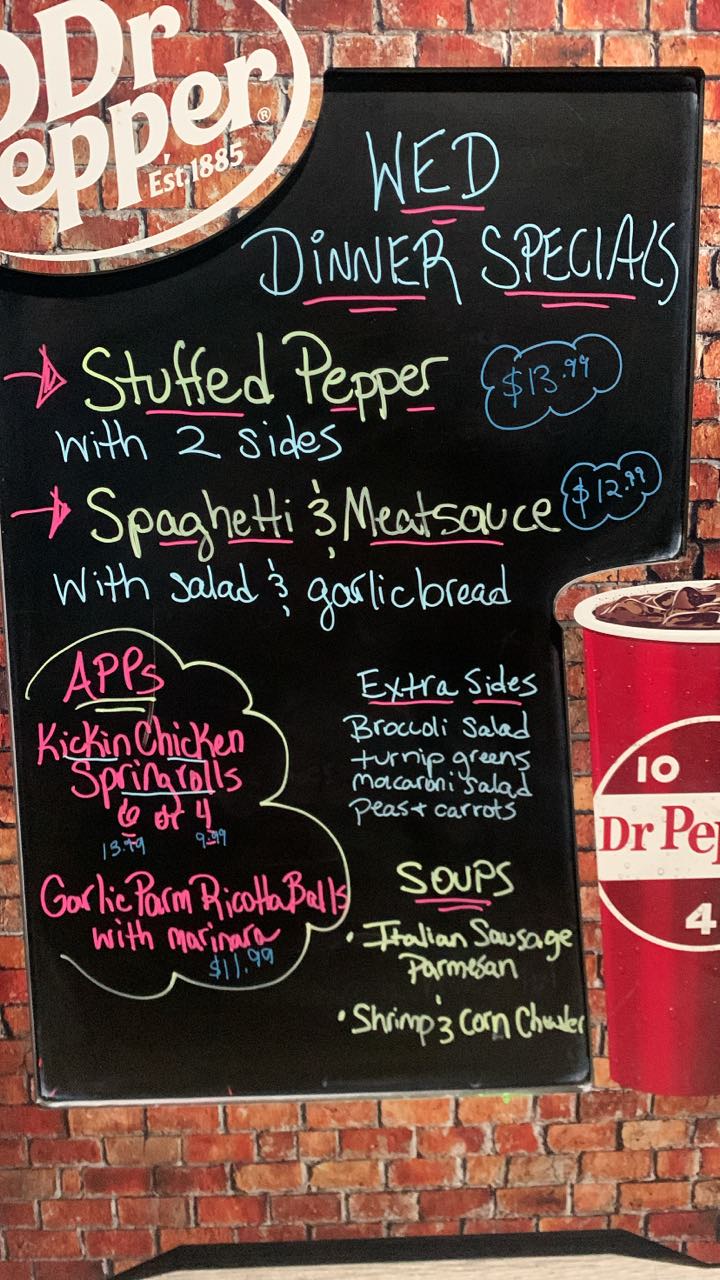 Dr
Pepper®
Est. 1885
WED
DiNNER SPECIALS
Stuffed Pepper $13.99
with 2 sides
Spaghetti & Meatsauce $12.99
with salad & garlic bread
APPs
Kickin Chicken
Springrolls
6 or 4
13.99 9.99
Garlic Parm Ricotta Balls
with marinara
$11.99
Extra Sides
Broccoli Salad
turnip greens
macaroni salad
peas + carrots
SOUPS
• Italian Sausage
Parmesan
• Shrimp & Corn Chowder
10
Dr Pep
4